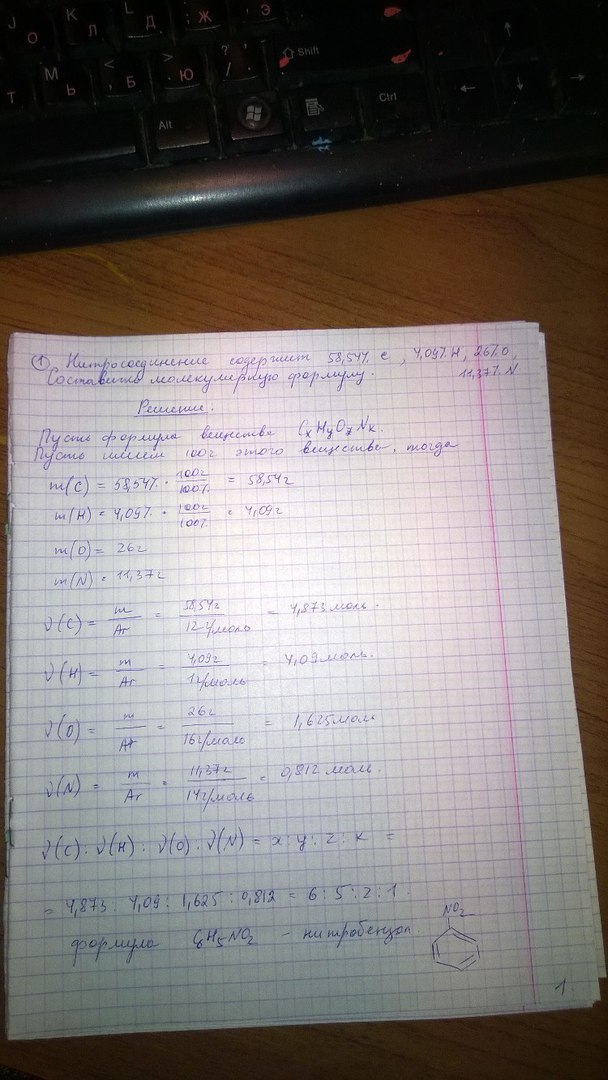 О К Л Д Ж Э
Т Ь Б Ю
Shift
Alt
Ctrl
① Нитросоединение содержит 58,54% C, 4,09% H, 26% O,
Составить молекулярную формулу. 11,37% N
Решение.
Пусть формула вещества CxHyOzNk.
Пусть имеем 100г этого вещества, тогда
m(C) = 58,54% · 100г/100% = 58,54г
m(H) = 4,09% · 100г/100% = 4,09г
m(O) = 26г
m(N) = 11,37г
ν(C) = m/Ar = 58,54г/12г/моль = 4,873 моль.
ν(H) = m/Ar = 4,09г/1г/моль = 4,09 моль.
ν(O) = m/Ar = 26г/16г/моль = 1,625 моль
ν(N) = m/Ar = 11,37г/14г/моль = 0,812 моль.
ν(C) : ν(H) : ν(O) : ν(N) = x : y : z : k =
= 4,873 : 4,09 : 1,625 : 0,812 = 6 : 5 : 2 : 1.
формула C6H5NO2 – нитробензол.
NO2
1